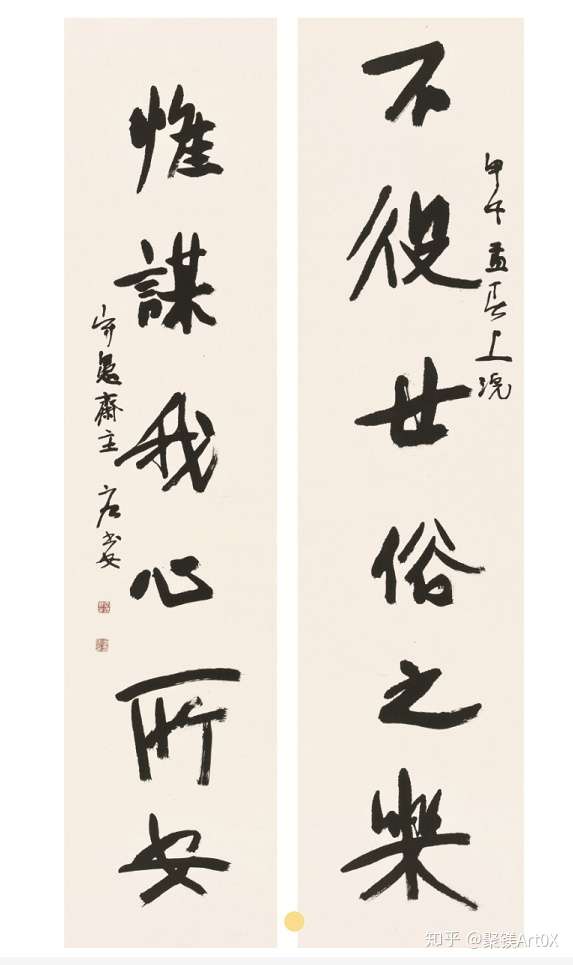 不役世俗之樂
甲午孟春上浣
惟謀我心所安
守愚齋主
知乎 @聚镁Art0X